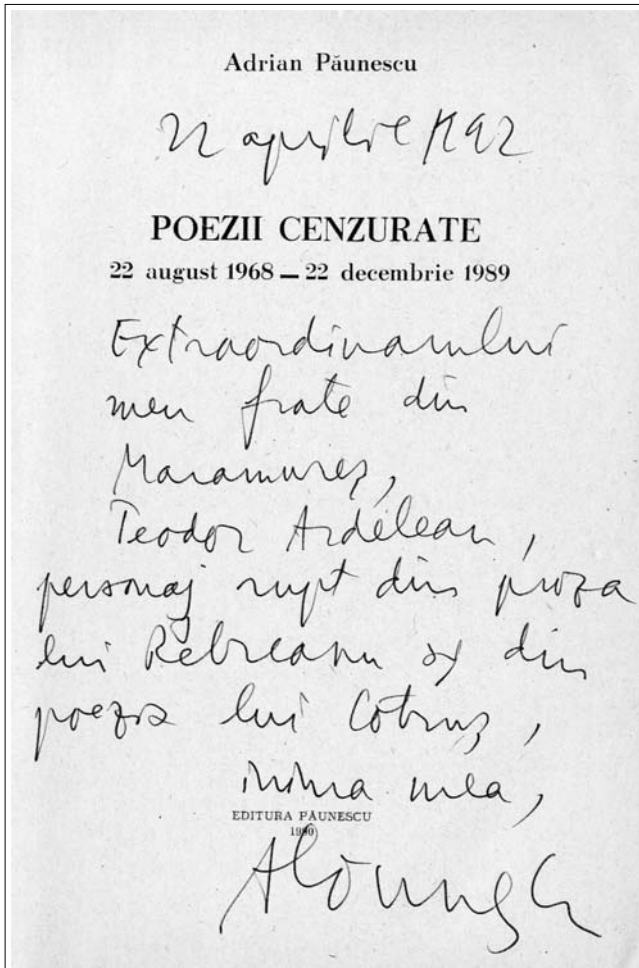 Adrian Păunescu
22 aprilie 1992
POEZII CENZURATE
22 august 1968 — 22 decembrie 1989
Extraordinarului
meu frate din
Maramureș,
Teodor Ardelean,
personaj rupt din proza
lui Rebreanu și din
poezia lui Cotruș,
inima mea,
EDITURA PĂUNESCU
1990